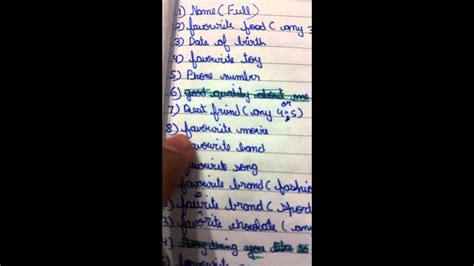 1) Name (Full)
2) favourite food ( any 3
3) Date of birth
4) favourite toy
5) Phone number
6) good quality about me
or
7) Best friend (any 4 5)
8) favourite movie
favourite band
favourite song
favourite brand ( fashio
) favourite brand ( sport
3) favorite chocolate ( an
4)